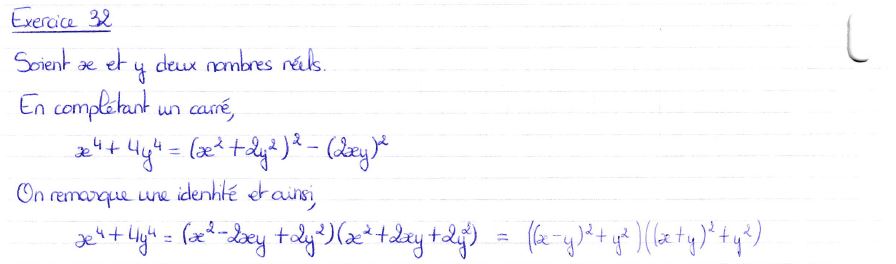 Exercice 32
Soient x et y deux nombres réels.
En complétant un carré,
x⁴ + 4y⁴ = (x² + 2y²)² - (2xy)²
On remarque une identité et ainsi,
x⁴ + 4y⁴ = (x² - 2xy + 2y²)(x² + 2xy + 2y²) = ((x-y)² + y²)((x+y)² + y²)